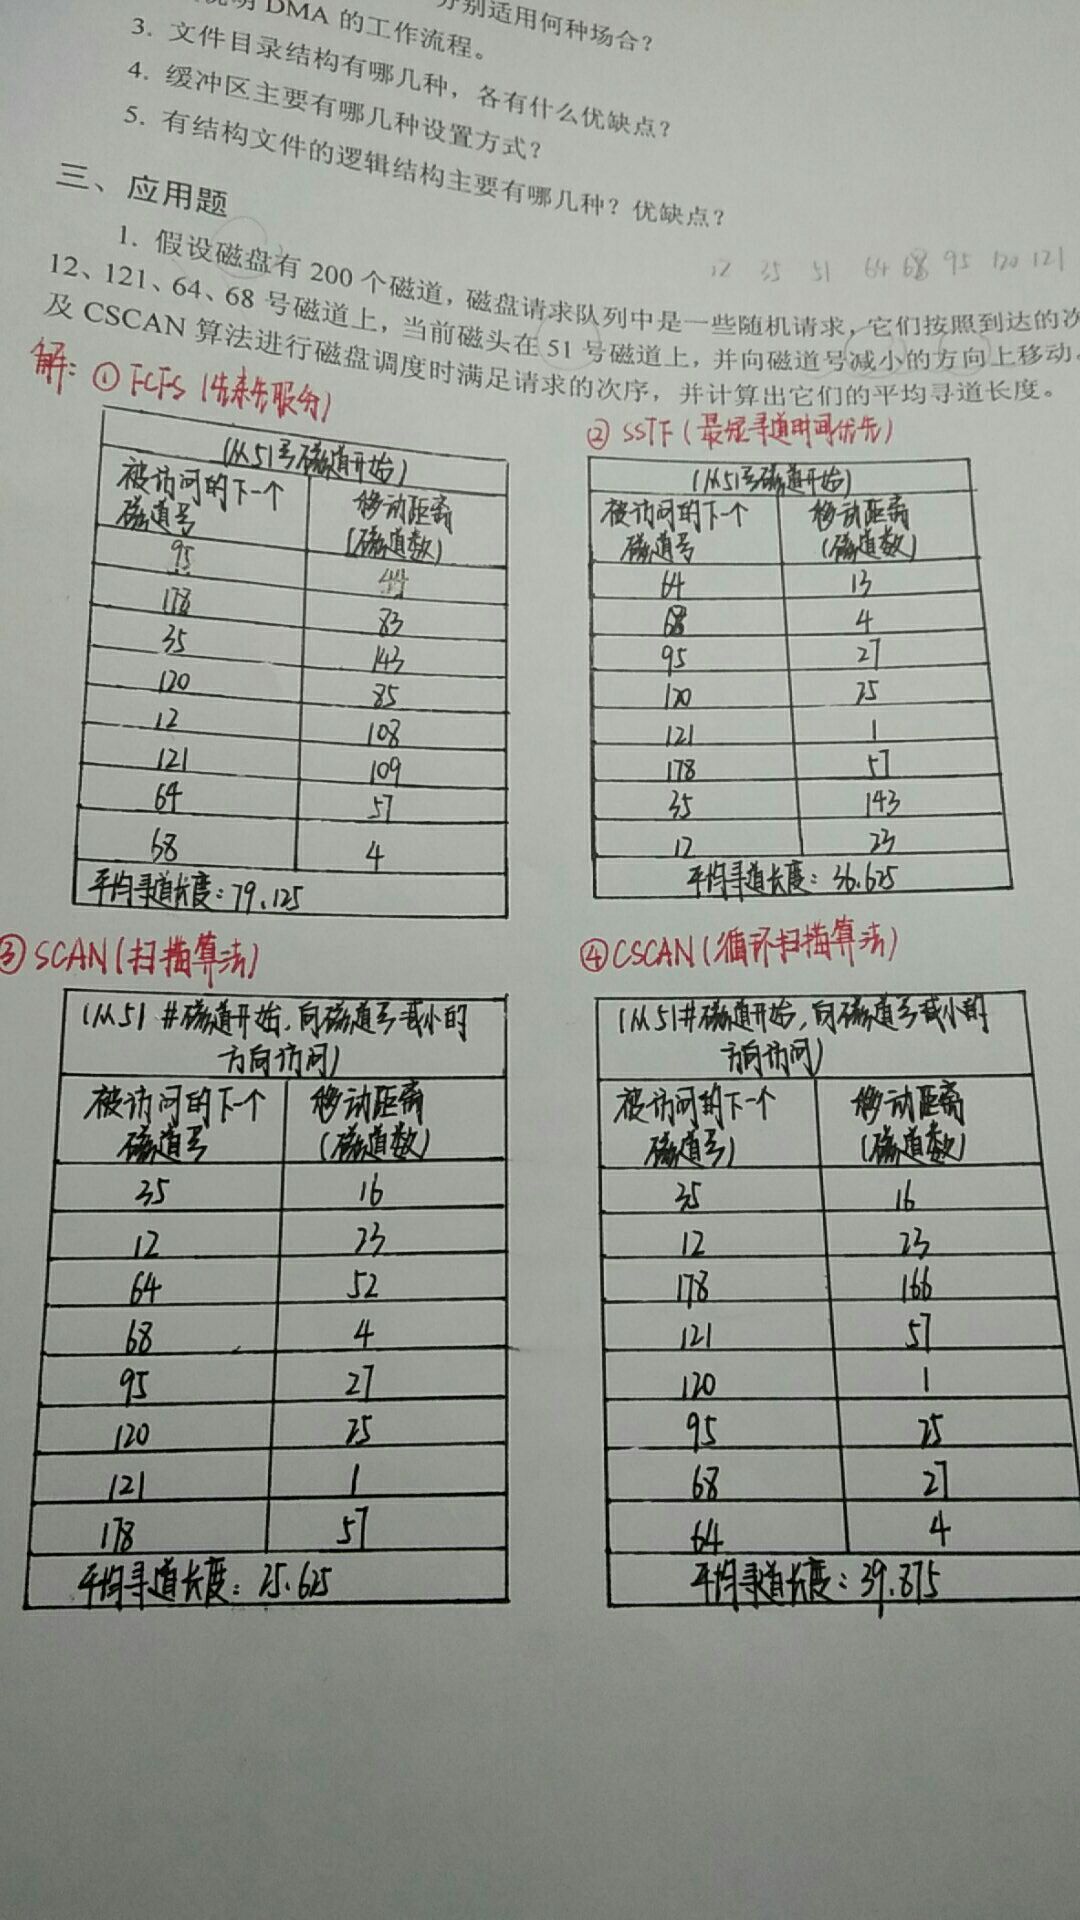 说明 DMA 的工作流程。
分别适用何种场合？
3. 文件目录结构有哪几种，各有什么优缺点？
4. 缓冲区主要有哪几种设置方式？
5. 有结构文件的逻辑结构主要有哪几种？优缺点？
三、应用题
12 35 51 64 68 95 120 121
1. 假设磁盘有 200 个磁道，磁盘请求队列中是一些随机请求，它们按照到达的次
12、121、64、68 号磁道上，当前磁头在 51 号磁道上，并向磁道号减小的方向上移动。
及 CSCAN 算法进行磁盘调度时满足请求的次序，并计算出它们的平均寻道长度。
解：① FCFS (先来先服务)
(从51号磁道开始)
被访问的下一个磁道号 移动距离(磁道数)
95 44
178 83
35 143
120 85
12 108
121 109
64 57
68 4
平均寻道长度：79.125
② SSTF (最短寻道时间优先)
(从51号磁道开始)
被访问的下一个磁道号 移动距离(磁道数)
64 13
68 4
95 27
120 25
121 1
178 57
35 143
12 23
平均寻道长度：36.625
③ SCAN (扫描算法)
(从51#磁道开始，向磁道号减小的
方向访问)
被访问的下一个磁道号 移动距离(磁道数)
35 16
12 23
64 52
68 4
95 27
120 25
121 1
178 57
平均寻道长度：25.625
④ CSCAN (循环扫描算法)
(从51#磁道开始，向磁道号减小的
方向访问)
被访问的下一个磁道号) 移动距离(磁道数)
35 16
12 23
178 166
121 57
120 1
95 25
68 27
64 4
平均寻道长度：39.875